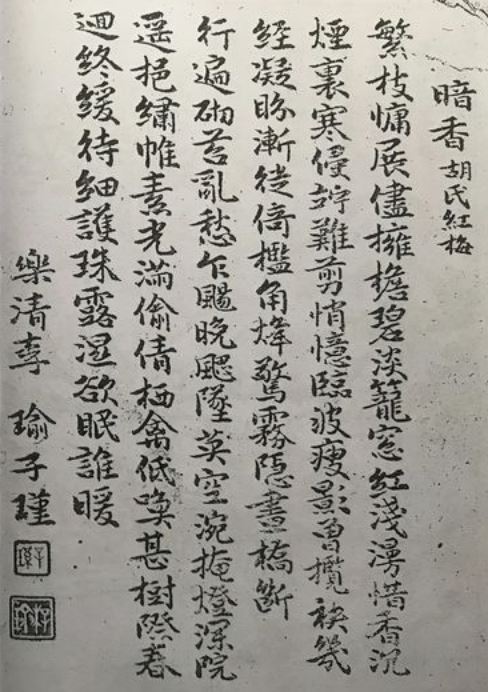 暗香 胡氏紅梅
繁枝慵展儘擁檐碧淡籠窓紅淺漫惜香沉
煙裏寒侵竚難剪悄憶臨波瘦影曾攬袂幾
經凝盼漸徙倚檻角烽驚霧隱畫橋斷
行遍砌苔亂愁乍颺晚颸墜英空涴掩燈深院
遥挹繡帷素光滿偷倩栖禽低喚甚樹隙春
迴終緩待細護珠露溼欲眠誰暖
樂清李 瑜子瑾